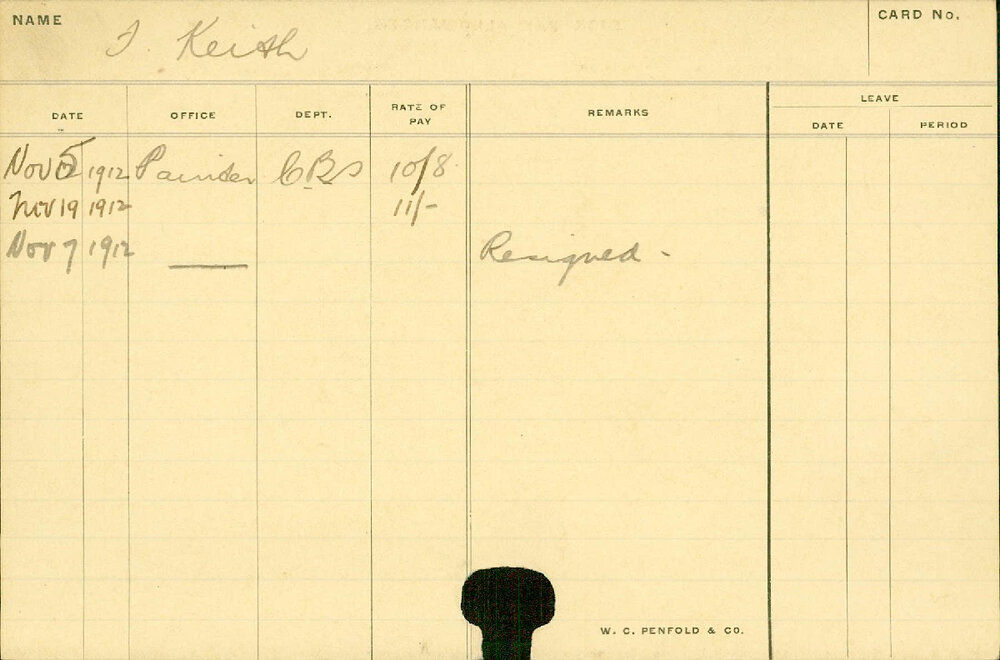 NAME
J. Keith
CARD No.
DATE OFFICE DEPT. RATE OF PAY REMARKS LEAVE
DATE PERIOD
Nov 5 1912 Painter CBS 10/8
Nov 19 1912 11/-
Nov 7 1912 —— Resigned -
W. C. PENFOLD & CO.